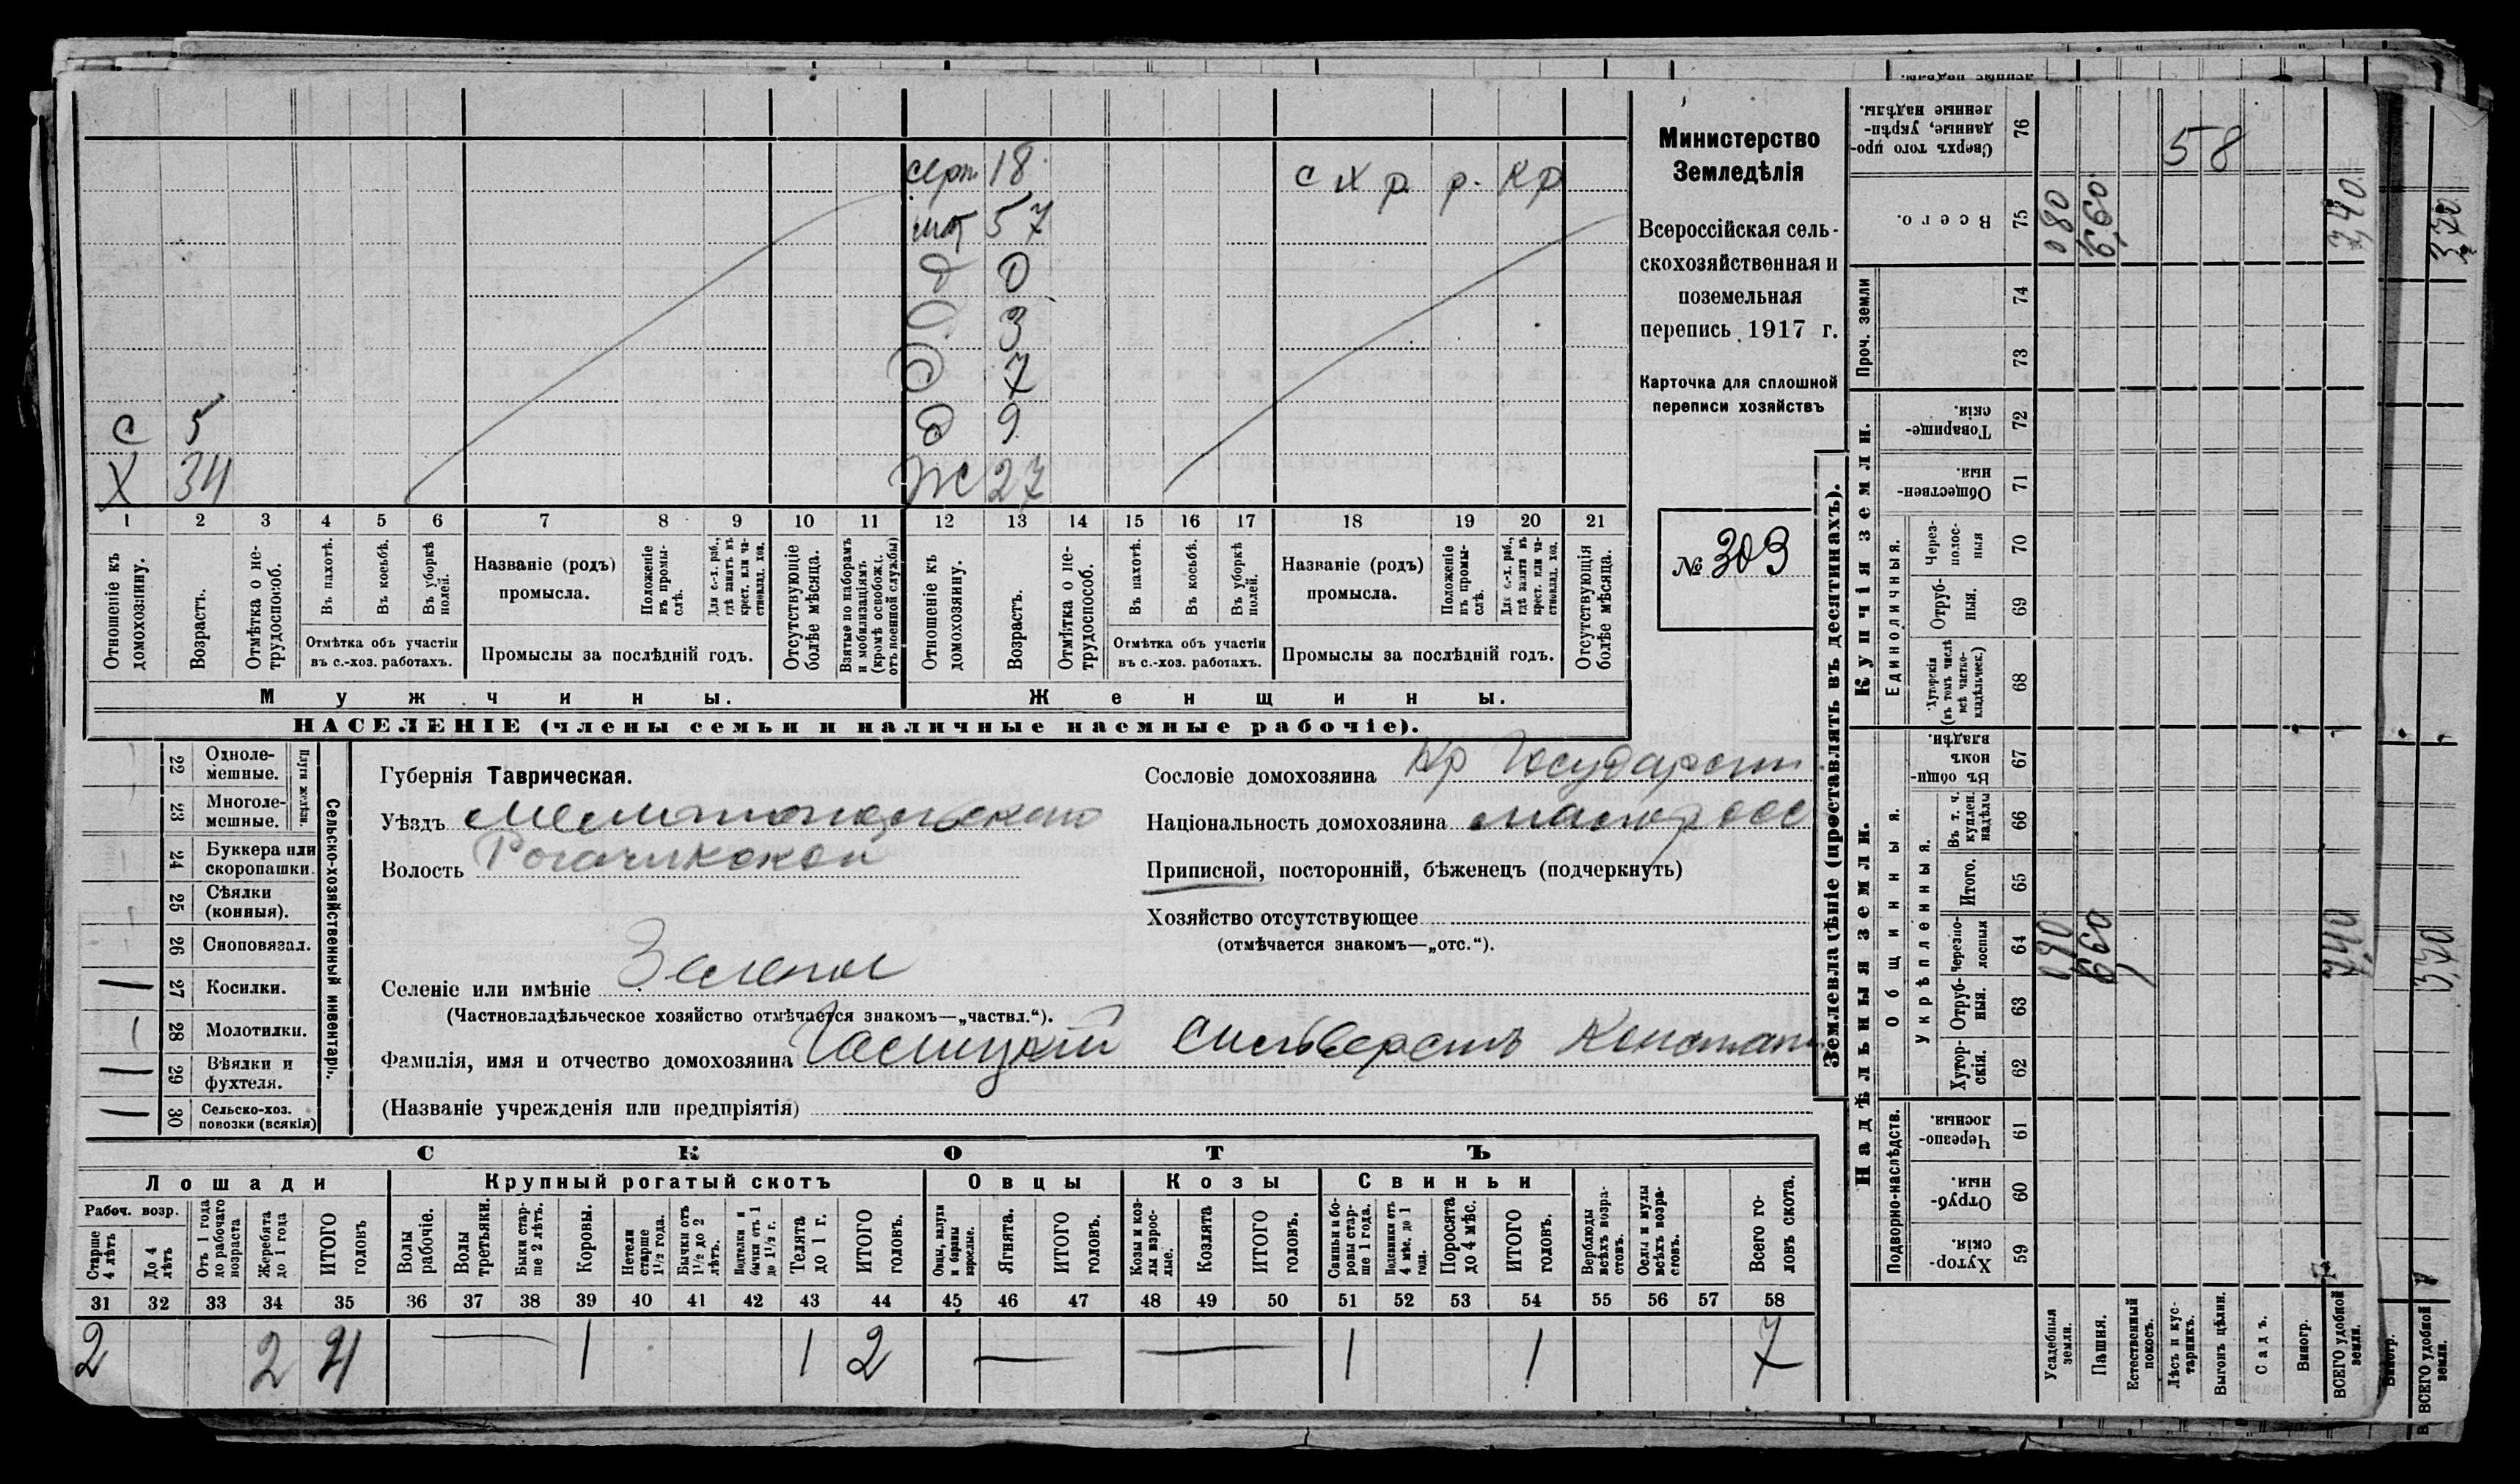 серт 18 с х р р. кр
мт 57
д 0
д 3
д 7
с 5 д 9
х 34 ж 27
1 2 3 4 5 6 7 8 9 10 11 12 13 14 15 16 17 18 19 20 21
Отношеніе къ домохозяину.
Возрастъ.
Отмѣтка о нетрудоспособ.
Въ пахотѣ.
Въ косьбѣ.
Въ уборкѣ полей.
Отмѣтка объ участіи
въ с.-хоз. работахъ.
Названіе (родъ)
промысла.
Положеніе въ промыслѣ.
Для с.-х. раб., гдѣ занятъ въ крест. или частновлад. хоз.
Промыслы за послѣдній годъ.
Отсутствующіе болѣе мѣсяца.
Взятые по наборамъ и мобилизаціямъ (кромѣ освобожд. отъ военной службы)
Отношеніе къ домохозяину.
Возрастъ.
Отмѣтка о нетрудоспособ.
Въ пахотѣ.
Въ косьбѣ.
Въ уборкѣ полей.
Отмѣтка объ участіи
въ с.-хоз. работахъ.
Названіе (родъ)
промысла.
Положеніе въ промыслѣ.
Для с.-х. раб., гдѣ занята въ крест. или частновлад. хоз.
Промыслы за послѣдній годъ.
Отсутствующія болѣе мѣсяца.
Мужчины. Женщины.
НАСЕЛЕНІЕ (члены семьи и наличные наемные рабочіе).
Министерство
Земледѣлія
Всероссійская сель-
скохозяйственная и
поземельная
перепись 1917 г.
Карточка для сплошной
переписи хозяйствъ
№ 303
Сельско-хозяйственный инвентарь.
Плуги желѣзн.
22 Одноле-
мешные.
23 Многоле-
мешные.
24 Буккера или
скоропашки.
25 Сѣялки
(конныя).
26 Сноповязал.
27 Косилки.
28 Молотилки.
29 Вѣялки и
фухтеля.
30 Сельско-хоз.
повозки (всякія)
Губернія Таврическая.
Уѣздъ Мелитопольскаго
Волость Рогачикской
Селеніе или имѣніе Зеленое
(Частновладѣльческое хозяйство отмѣчается знакомъ—„частвл.“).
Фамилія, имя и отчество домохозяина Сильверстъ Констант
(Названіе учрежденія или предпріятія)
Сословіе домохозяина Кр Государств
Національность домохозяина малоросс
Приписной, посторонній, бѣженецъ (подчеркнуть)
Хозяйство отсутствующее
(отмѣчается знакомъ—„отс.“).
СКОТЪ
Лошади Крупный рогатый скотъ Овцы Козы Свиньи
Рабоч. возр.
Старше 4 лѣтъ
До 4 лѣтъ
Отъ 1 года до рабочаго возраста
Жеребята до 1 года
ИТОГО головъ
Волы рабочіе.
Волы третьяки.
Быки старше 2 лѣтъ.
Коровы.
Нетели старше 1½ года.
Бычки отъ 1½ до 2 лѣтъ.
Подтелки и бычки отъ 1 до 1½ г.
Телята до 1 г.
ИТОГО головъ.
Овцы, валухи и бараны взрослые.
Ягнята.
ИТОГО головъ.
Козы и козлы взрослые.
Козлята
ИТОГО головъ.
Свиньи и боровы старше 1 года.
Подсвинки отъ 4 мѣс. до 1 года.
Поросята до 4 мѣс.
ИТОГО головъ.
Верблюды всѣхъ возрастовъ.
Ослы и мулы всѣхъ возрастовъ.
Всего головъ скота.
31 32 33 34 35 36 37 38 39 40 41 42 43 44 45 46 47 48 49 50 51 52 53 54 55 56 57 58
2 2 4 — 1 1 2 — — 1 1 7
Землевладѣніе (проставлять въ десятинахъ).
Надѣльныя земли.
Купчія земли.
Проч. земли
Подворно-наслѣдств.
Общинныя.
Укрѣпленныя.
Единоличныя.
Сверхъ того проданные, укрѣпленные надѣлы. 76 58
Всего. 75 080 6,60 7,40
74
73
Товарищескія. 72
Общественныя 71
Черезполосныя 70
Отрубныя. 69
Хуторскія (въ томъ числѣ всѣ частновладѣльческ.) 68
Въ общинномъ владѣн. 67
Въ т. ч. куплен. надѣлы 66
Итого. 65
Черезполосныя 64 660 7,40
Отрубныя. 63
Хуторскія. 62
Черезполосныя 61
Отрубныя. 60
Хуторскія. 59
Усадебныя земли.
Пашня.
Естественный покосъ.
Лѣсъ и кустарникъ.
Выгонъ цѣлин.
Садъ.
Виногр.
ВСЕГО удобной земли.
Виногр.
ВСЕГО удобной земли.